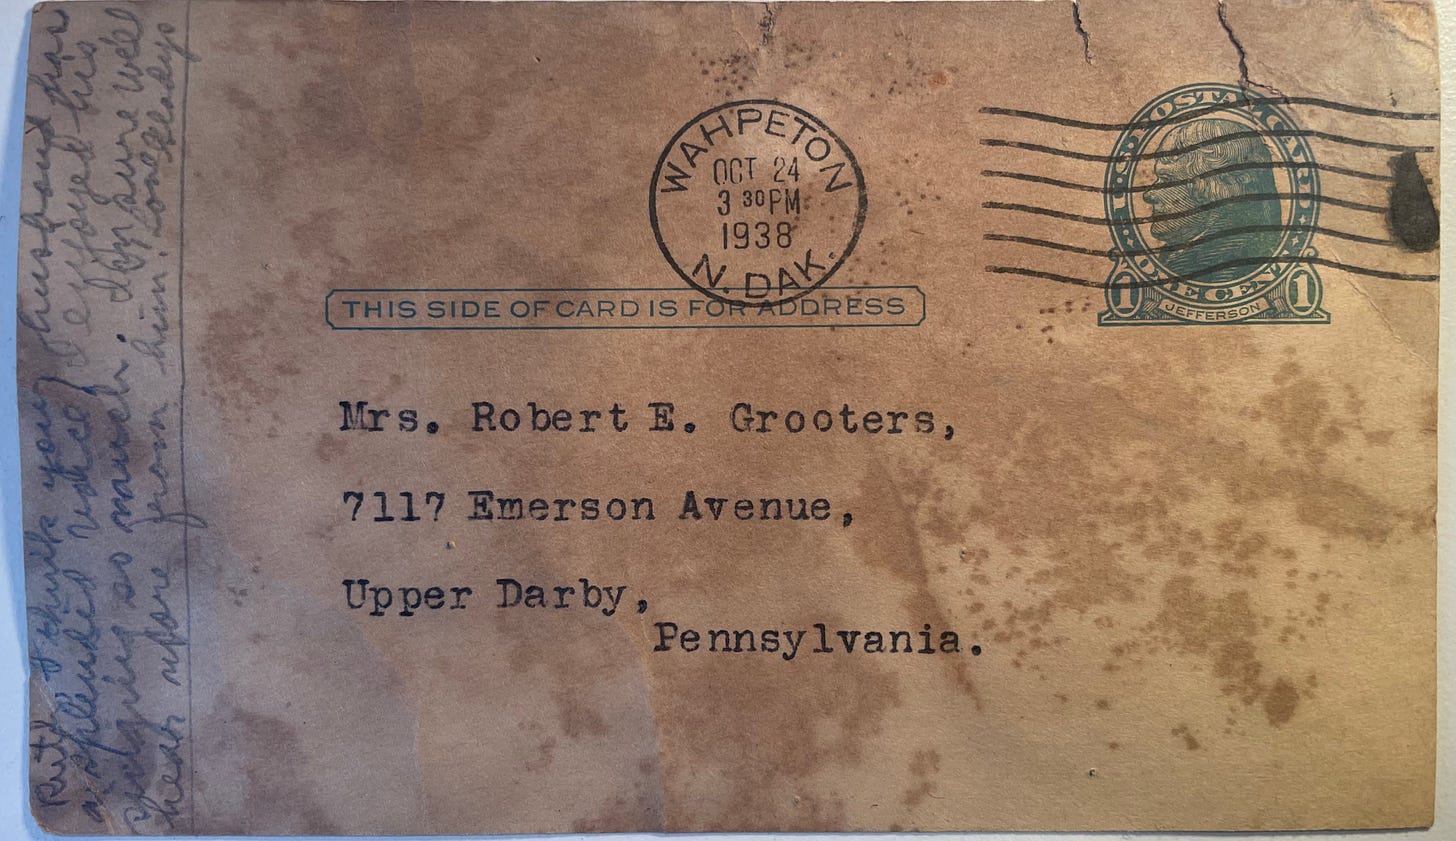 WAHPETON
OCT 24
3 30 PM
1938
N. DAK.
U.S. POSTAL CARD
ONE CENT
1 1
JEFFERSON
THIS SIDE OF CARD IS FOR ADDRESS
Mrs. Robert E. Grooters,
7117 Emerson Avenue,
Upper Darby,
Pennsylvania.
Ruth, I think your husband has
a splendid voice, I enjoyed his
so much. sure we'll
hear more from him. Love Gladys